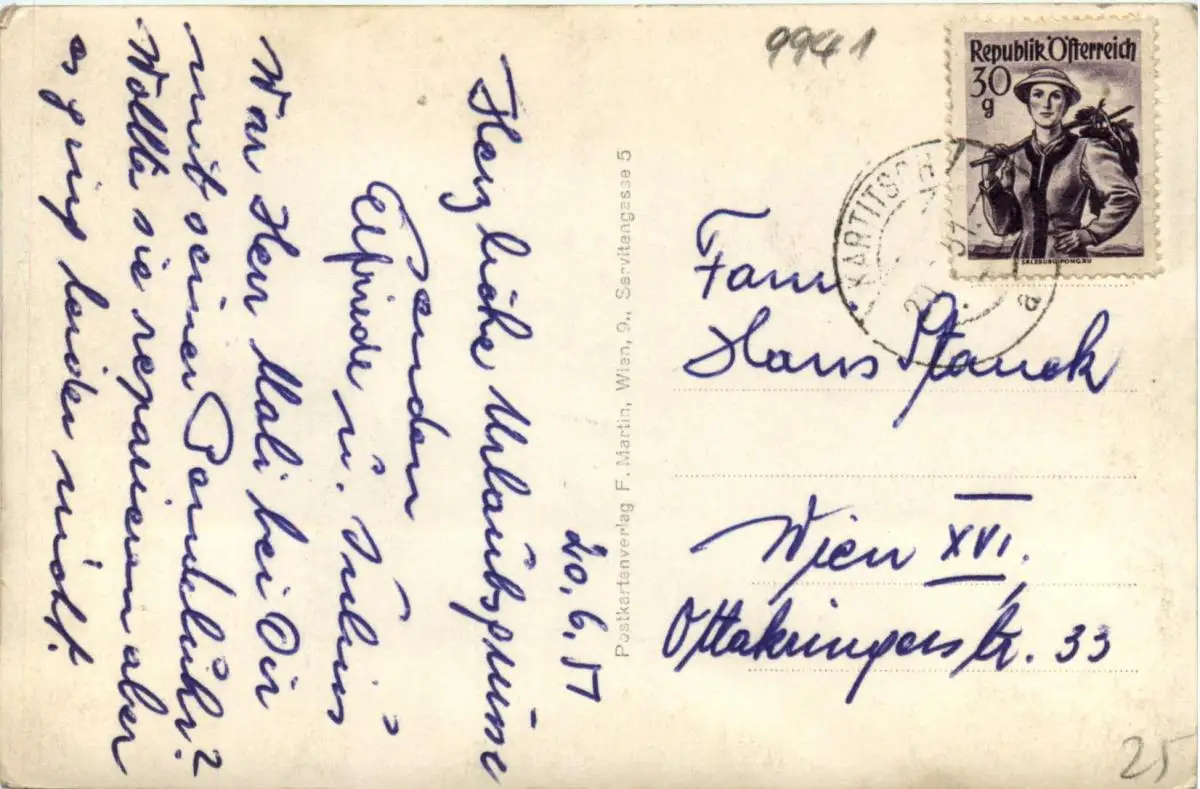 20. 6. 51
Herzliche Urlaubsgrüsse
senden
Elfriede u. Julius
War Herr Mali bei Dir
mit seiner Pendeluhr?
Wollte sie reparieren aber
es ging leider nicht.
Postkartenverlag F. Martin, Wien, 9., Servitengasse 5
9941
Republik Österreich
30
g
SALZBURG-PONGAU
KARTITSCH
20. 51.
a
Fam
Hans Stanek
Wien XVI.
Ottakringerstr. 33
25